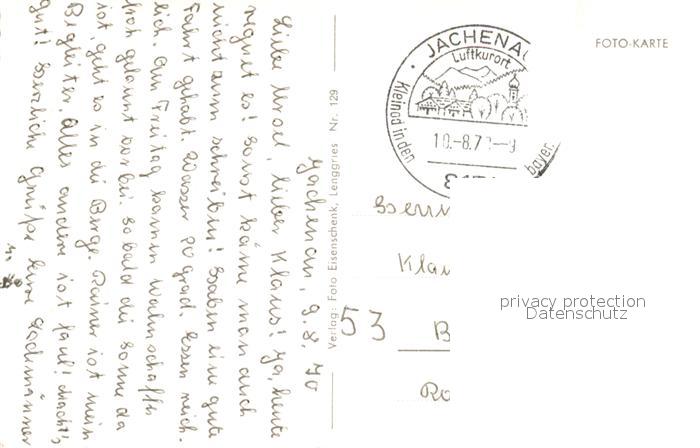 FOTO-KARTE
JACHENAU
Luftkurort
Kleinod in den
bayer.
10.-8.7
Verlag: Foto Eisenschenk, Lenggries Nr. 129
Jachenau, 9.8.70
Liebe Ursel, lieber Klaus! Ja, heute
regnet es! Sonst käme man auch
nicht zum schreiben! Haben eine gute
Fahrt gehabt. Wasser 20 grad. Essen reich-
lich. Am Freitag kamen
froh gelaunt vorbei. Sobald die Sonne da
ist, geht es in die Berge. Rainer ist mein
Begleiter. Alles andere ist faul! Macht's
gut! Herzliche Grüße Eure
Herrn
Klau
53 B
Ro
privacy protection
Datenschutz